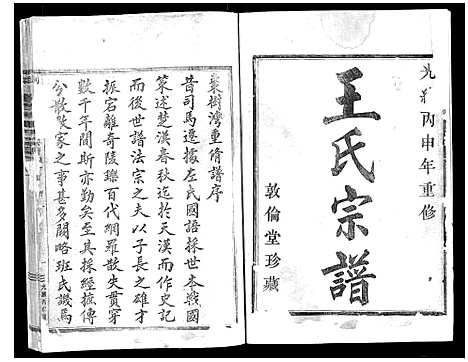 光緒丙申年重修
王氏宗譜
敦倫堂珍藏
棗樹灣重脩譜序
昔司馬遷據左氏國語採世本戰國
策述楚漢春秋迄於天漢而作史記
而後世譜法宗之夫以子長之雄才
振宕離奇陵璨百代網羅散失貫穿
數千年間斯亦勤矣至其採經摭傳
分散數家之事甚多闊略班氏譏焉